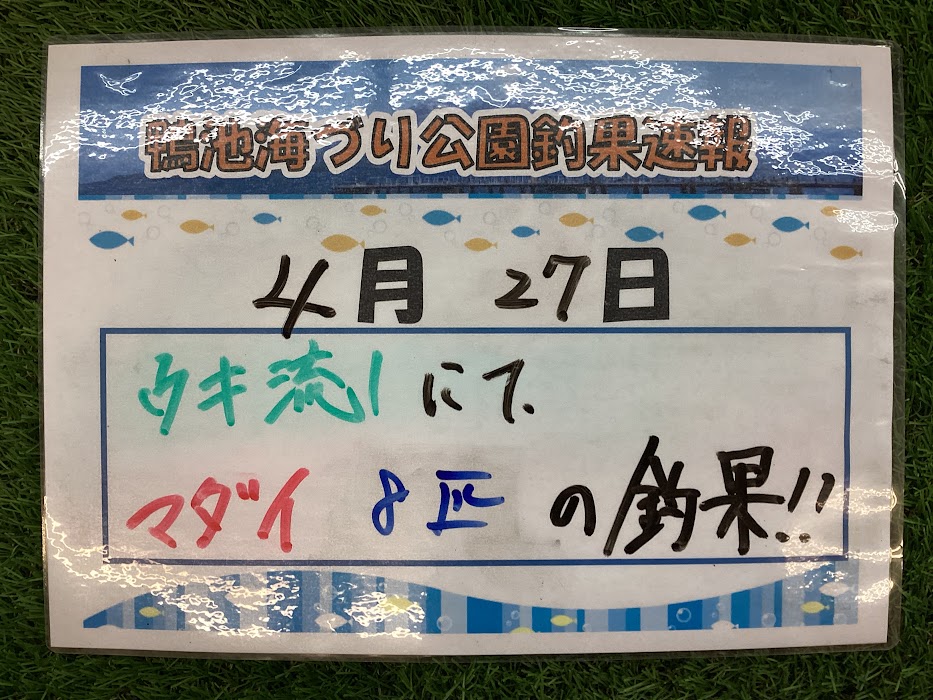 鴨池海づり公園釣果速報
4月 27日
ウキ流しにて、
マダイ 8匹 の釣果!!